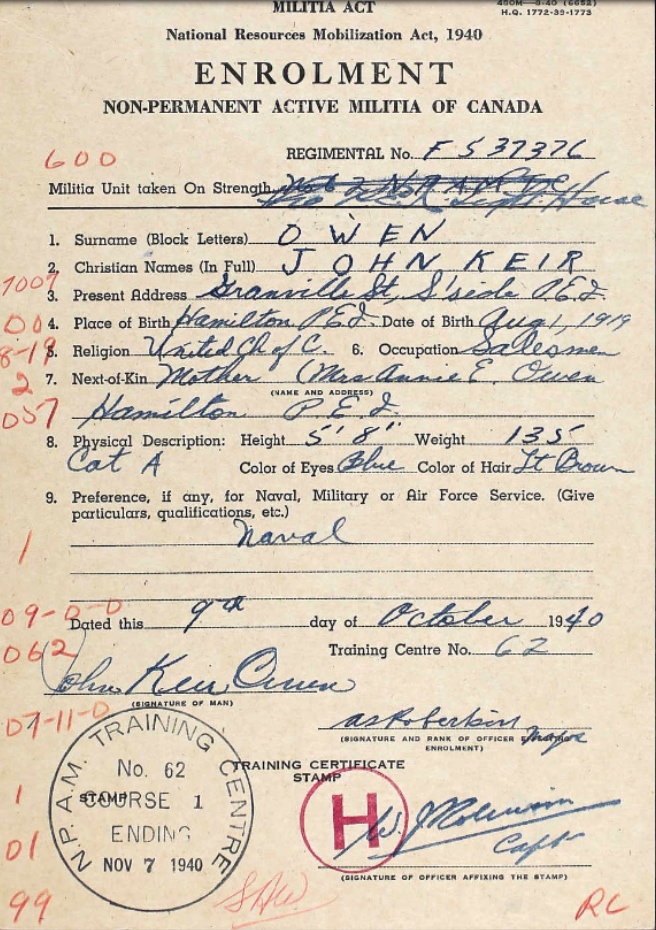 MILITIA ACT
H.Q. 1772-39-1773
National Resources Mobilization Act, 1940
ENROLMENT
NON-PERMANENT ACTIVE MILITIA OF CANADA
600
REGIMENTAL No. F 537376
Militia Unit taken On Strength
1. Surname (Block Letters) OWEN
2. Christian Names (In Full) JOHN KEIR
7009
3. Present Address Granville St, S'side P.E.I.
00
4. Place of Birth Hamilton P.E.I. Date of Birth Aug 1, 1919
8-19
5. Religion United Ch of C. 6. Occupation Salesman
2
7. Next-of-Kin Mother (Mrs Annie E. Owen
(NAME AND ADDRESS)
057
Hamilton P.E.I.
8. Physical Description: Height 5' 8" Weight 135
Cat A Color of Eyes Blue Color of Hair Lt Brown
9. Preference, if any, for Naval, Military or Air Force Service. (Give
particulars, qualifications, etc.)
Naval
1
09-0-0
Dated this 9th day of October 1940
062
Training Centre No. 62
John Keir Owen
(SIGNATURE OF MAN)
07-11-0
Major
(SIGNATURE AND RANK OF OFFICER
ENROLMENT)
N.P.A.M. TRAINING CENTRE
No. 62
COURSE 1
ENDING
NOV 7 1940
STAMP
TRAINING CERTIFICATE
STAMP
H
1
Capt
01
(SIGNATURE OF OFFICER AFFIXING THE STAMP)
99
RC